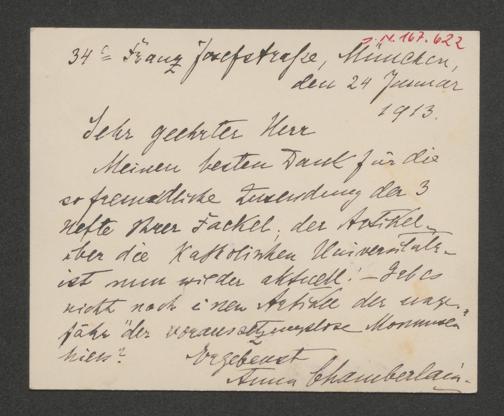 J.N. 167.622
34c Franz Josefstraße, München,
den 24 Januar
1913.
Sehr geehrter Herr
Meinen besten Dank für die
so freundliche Zusendung der 3
Hefte Ihrer Fackel; der Artikel
über die Katholischen Universität
ist nun wieder aktuell! – Gab es
nicht noch einen Artikel der
"der voraussetzungslose
hiess? Ergebenst
Anna Chamberlain.